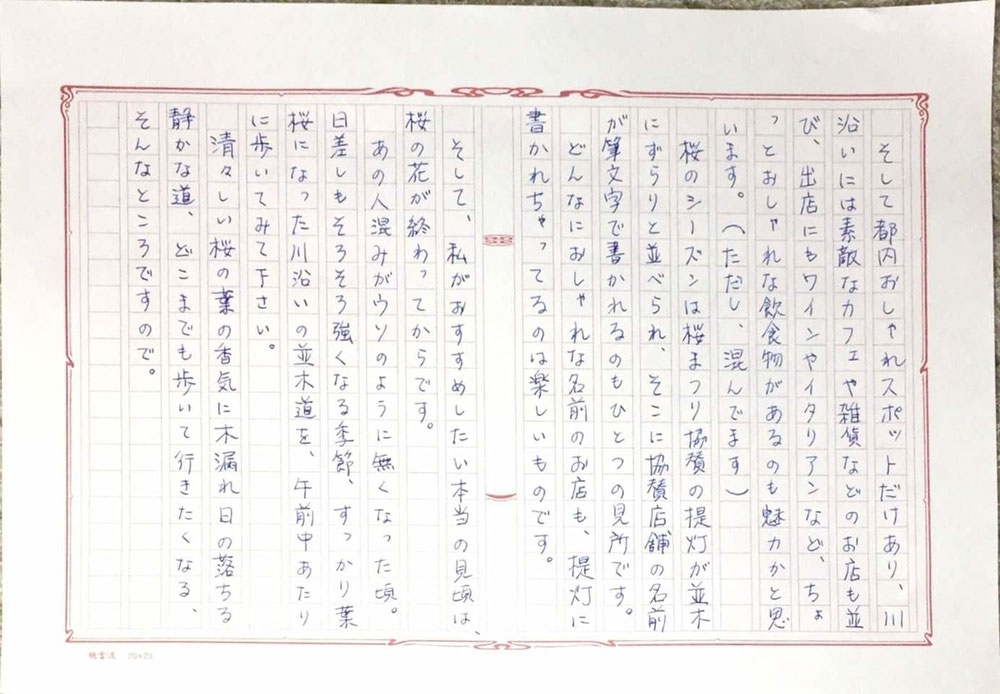 そして都内おしゃれスポットだけあり、川
沿いには素敵なカフェや雑貨などのお店も並
び、出店にもワインやイタリアンなど、ちょ
っとおしゃれな飲食物があるのも魅力かと思
います。（ただし、混んでます）
桜のシーズンは桜まつり協賛の提灯が並木
にずらりと並べられ、そこに協賛店舗の名前
が筆文字で書かれるのもひとつの見所です。
どんなにおしゃれな名前のお店も、提灯に
書かれちゃってるのは楽しいものです。
そして、私がおすすめしたい本当の見頃は、
桜の花が終わってからです。
あの人混みがウソのように無くなった頃。
日差しもそろそろ強くなる季節、すっかり葉
桜になった川沿いの並木道を、午前中あたり
に歩いてみて下さい。
清々しい桜の葉の香気に木漏れ日の落ちる
静かな道、どこまでも歩いて行きたくなる、
そんなところですので。
20×20